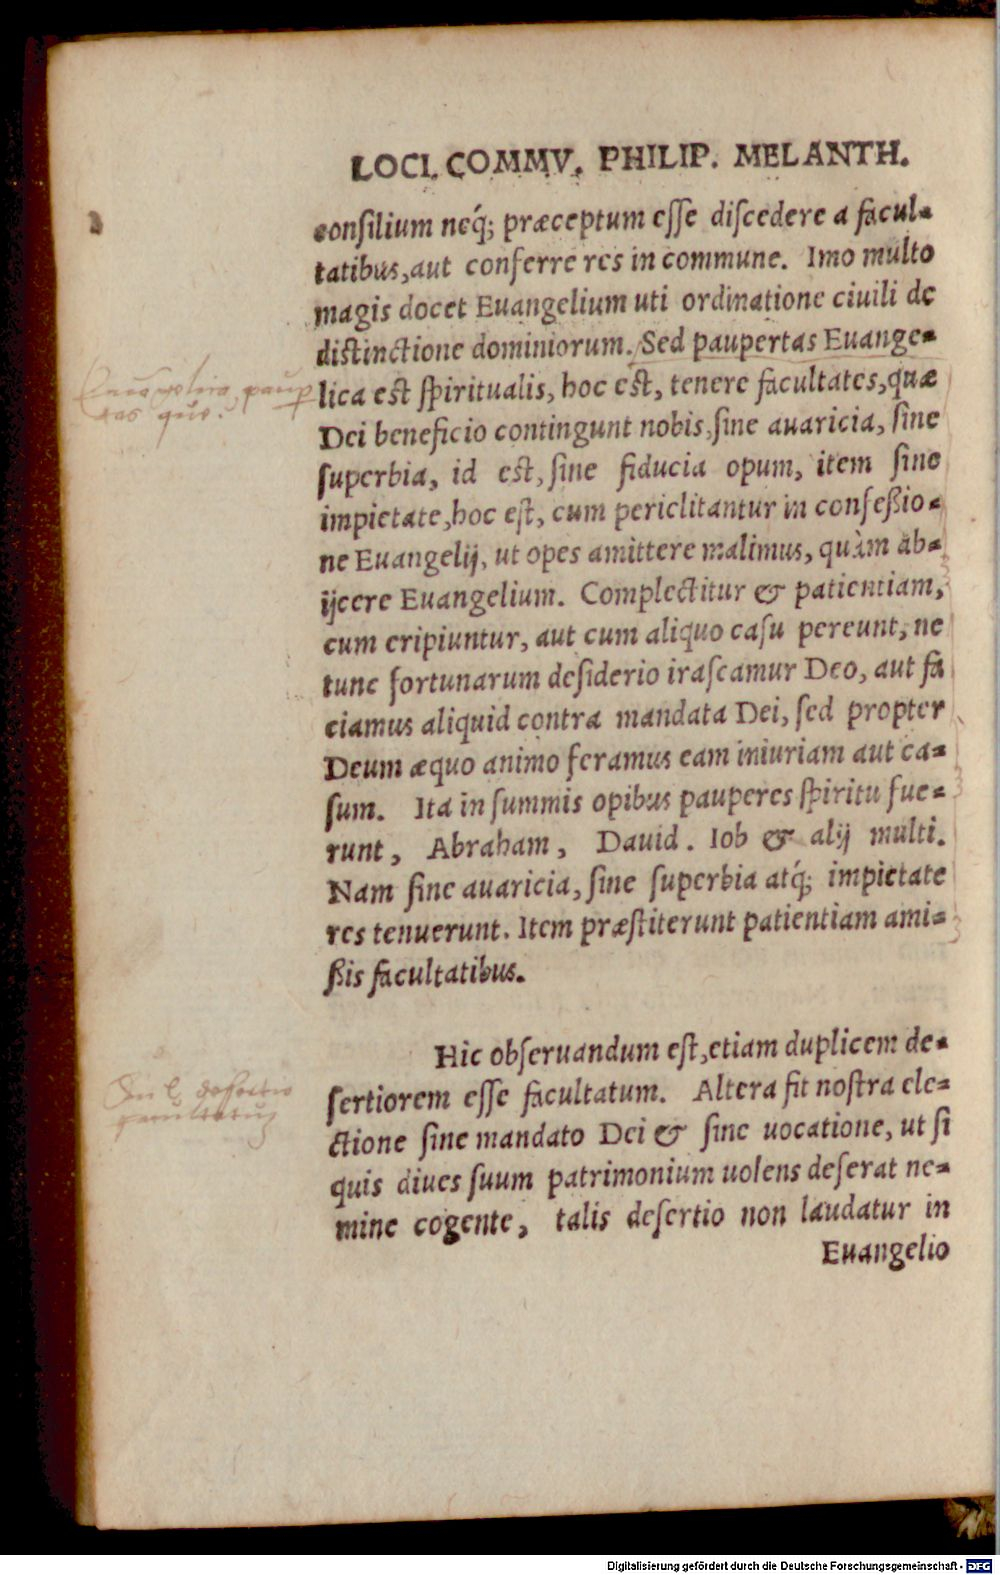 LOCI. COMMV. PHILIP. MELANTH.
consilium neq́; præceptum eſſe diſcedere a facul-
tatibus, aut conferre res in commune. Imo multo
magis docet Euangelium uti ordinatione ciuili de
diſtinctione dominiorum. Sed paupertas Euange-
lica eſt ſpiritualis, hoc eſt, tenere facultates, quæ
Dei beneficio contingunt nobis, ſine auaricia, ſine
ſuperbia, id eſt, ſine fiducia opum, item ſine
impietate, hoc eſt, cum periclitantur in confeßio-
ne Euangelij, ut opes amittere malimus, quàm ab-
ijcere Euangelium. Complectitur & patientiam,
cum eripiuntur, aut cum aliquo caſu pereunt, ne
tunc fortunarum deſiderio iraſcamur Deo, aut fa
ciamus aliquid contra mandata Dei, ſed propter
Deum æquo animo feramus eam iniuriam aut ca-
ſum. Ita in ſummis opibus pauperes ſpiritu fue-
runt, Abraham, Dauid. Iob & alij multi.
Nam ſine auaricia, ſine ſuperbia atq́; impietate
res tenuerunt. Item præſtiterunt patientiam ami-
ßis facultatibus.
Hic obſeruandum eſt, etiam duplicem de-
ſertiorem eſſe facultatum. Altera fit noſtra ele-
ctione ſine mandato Dei & ſine uocatione, ut ſi
quis diues ſuum patrimonium uolens deſerat ne-
mine cogente, talis deſertio non laudatur in
Euangelio
Digitalisierung gefördert durch die Deutsche Forschungsgemeinschaft - DFG